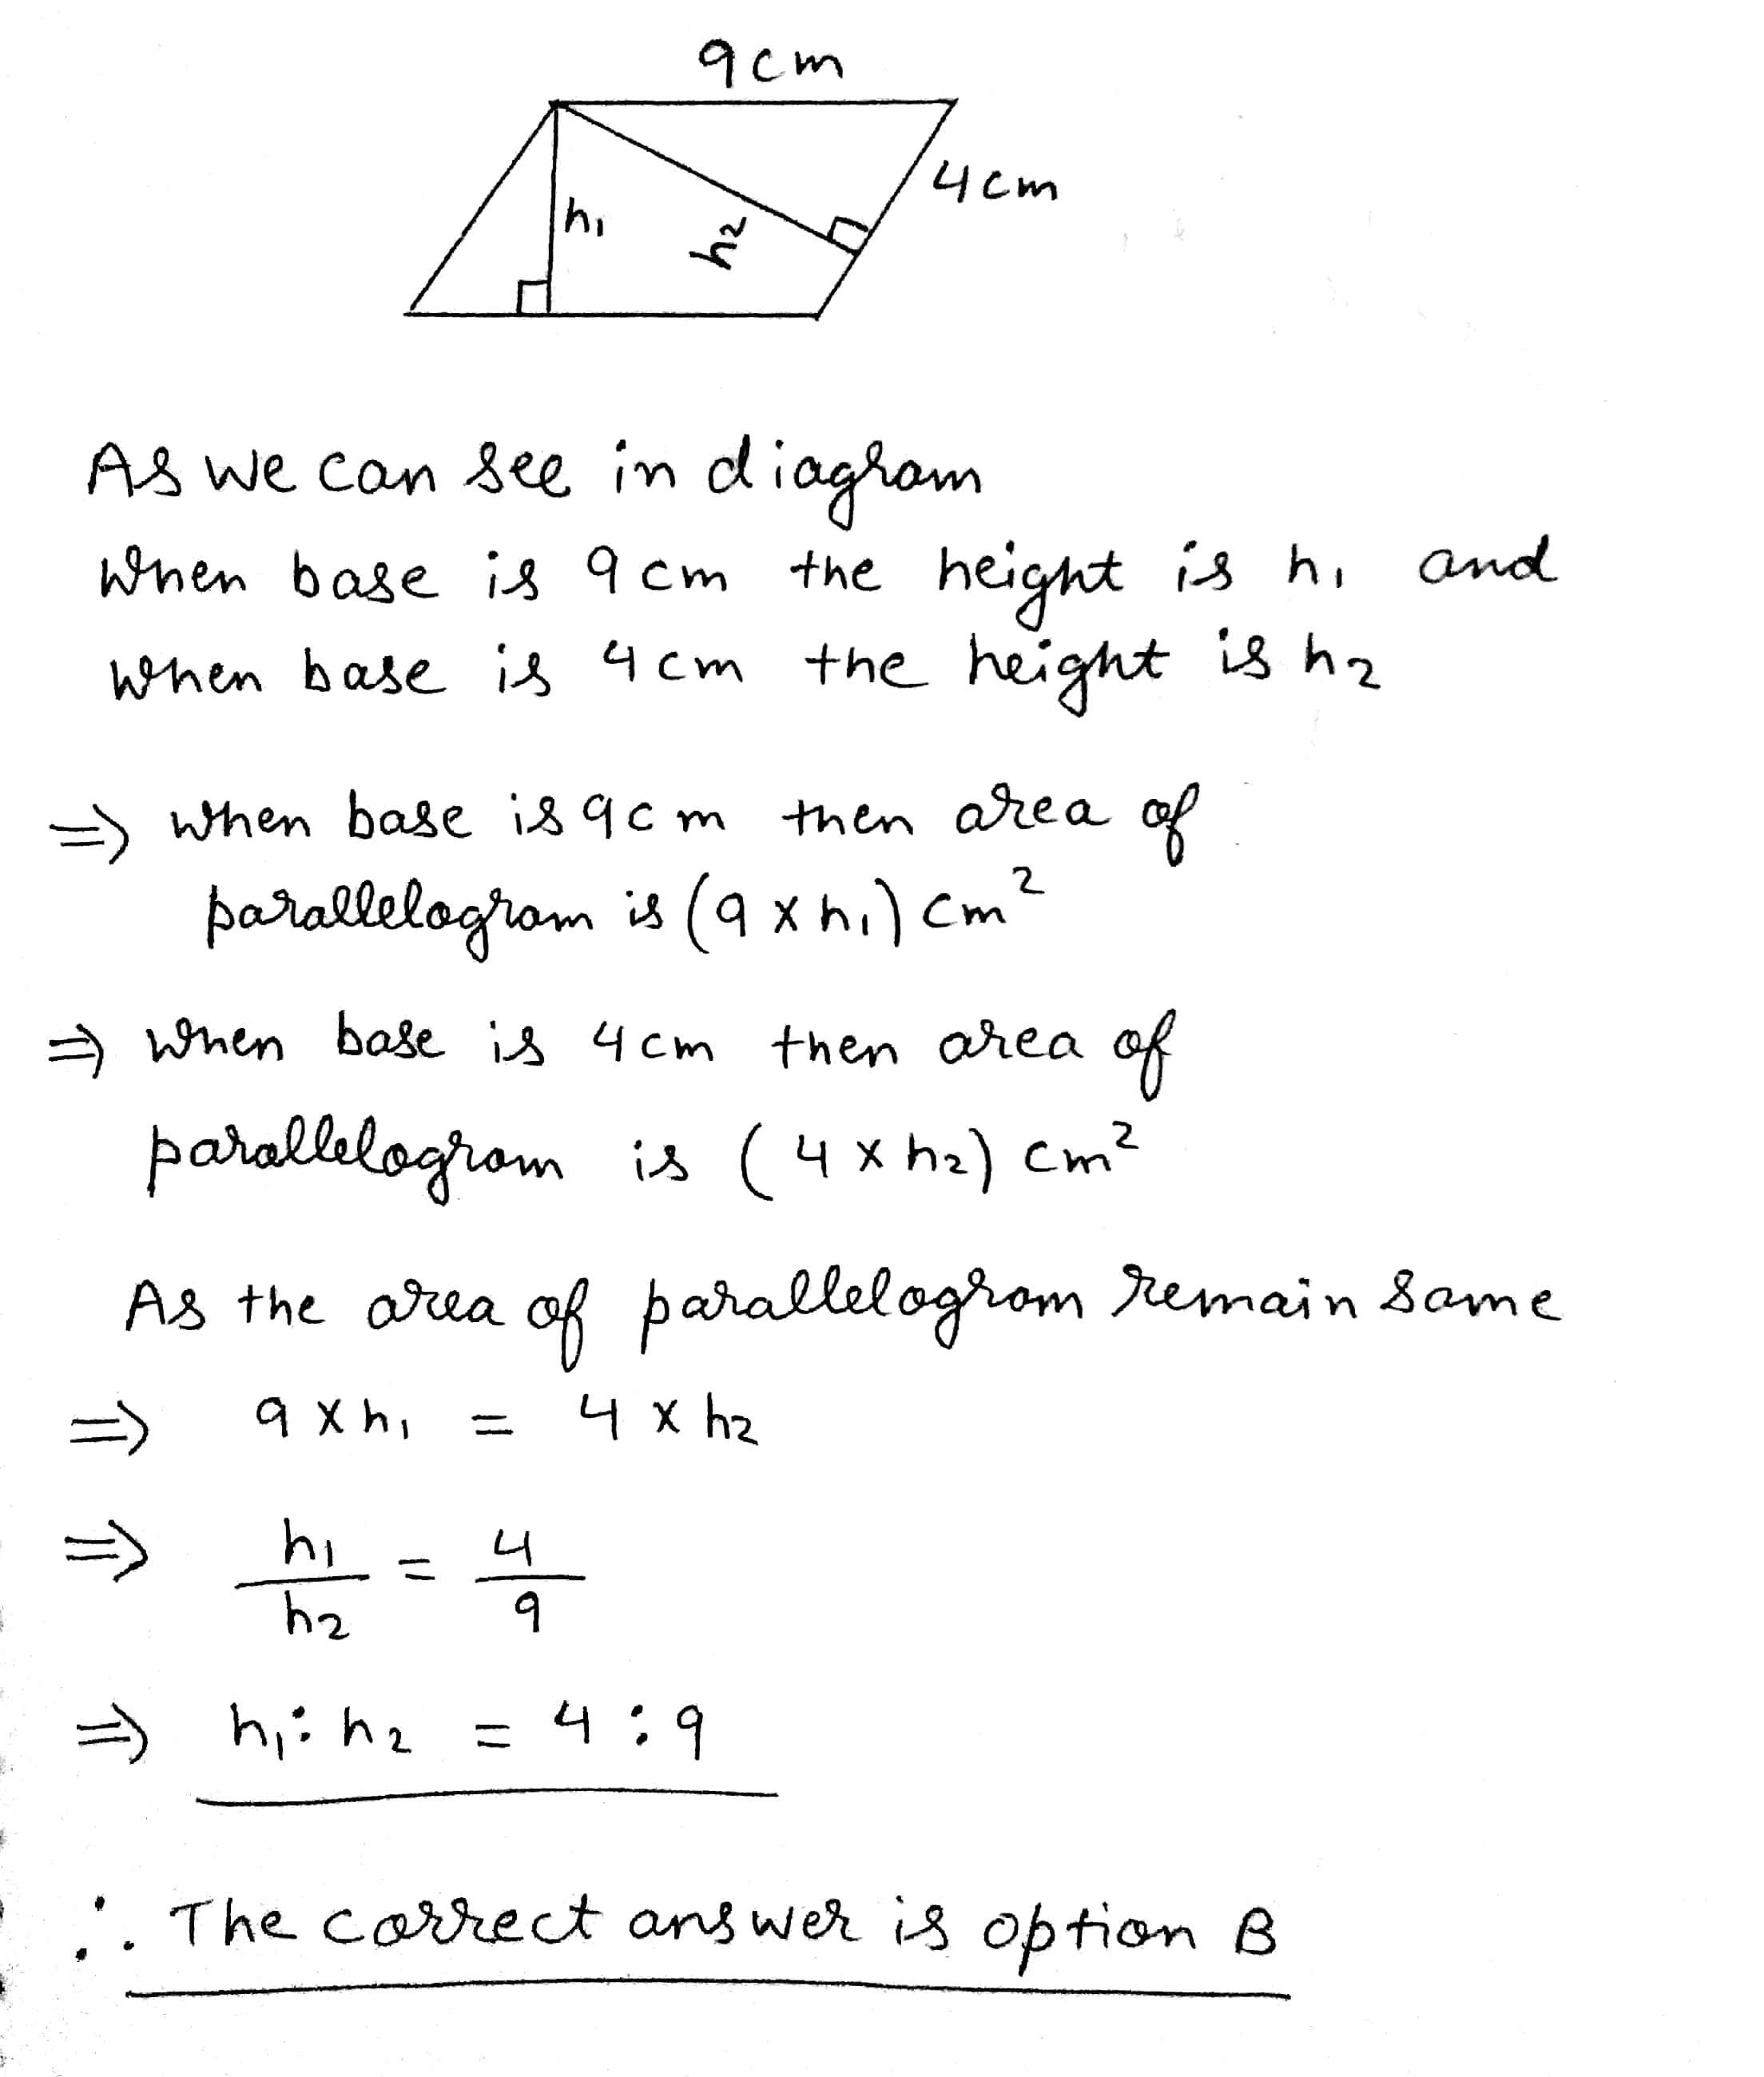 9cm
4cm
h₁
h₂
As we can see in diagram
When base is 9cm the height is h₁ and
When base is 4cm the height is h₂
⇒ When base is 9cm then area of
parallelogram is (9 x h₁) cm²
⇒ When base is 4cm then area of
parallelogram is (4 x h₂) cm²
As the area of parallelogram remain same
⇒ 9 x h₁ = 4 x h₂
⇒ h₁/h₂ = 4/9
⇒ h₁ : h₂ = 4 : 9
∴ The correct answer is option B